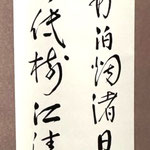 舟泊烟渚日
低樹江清